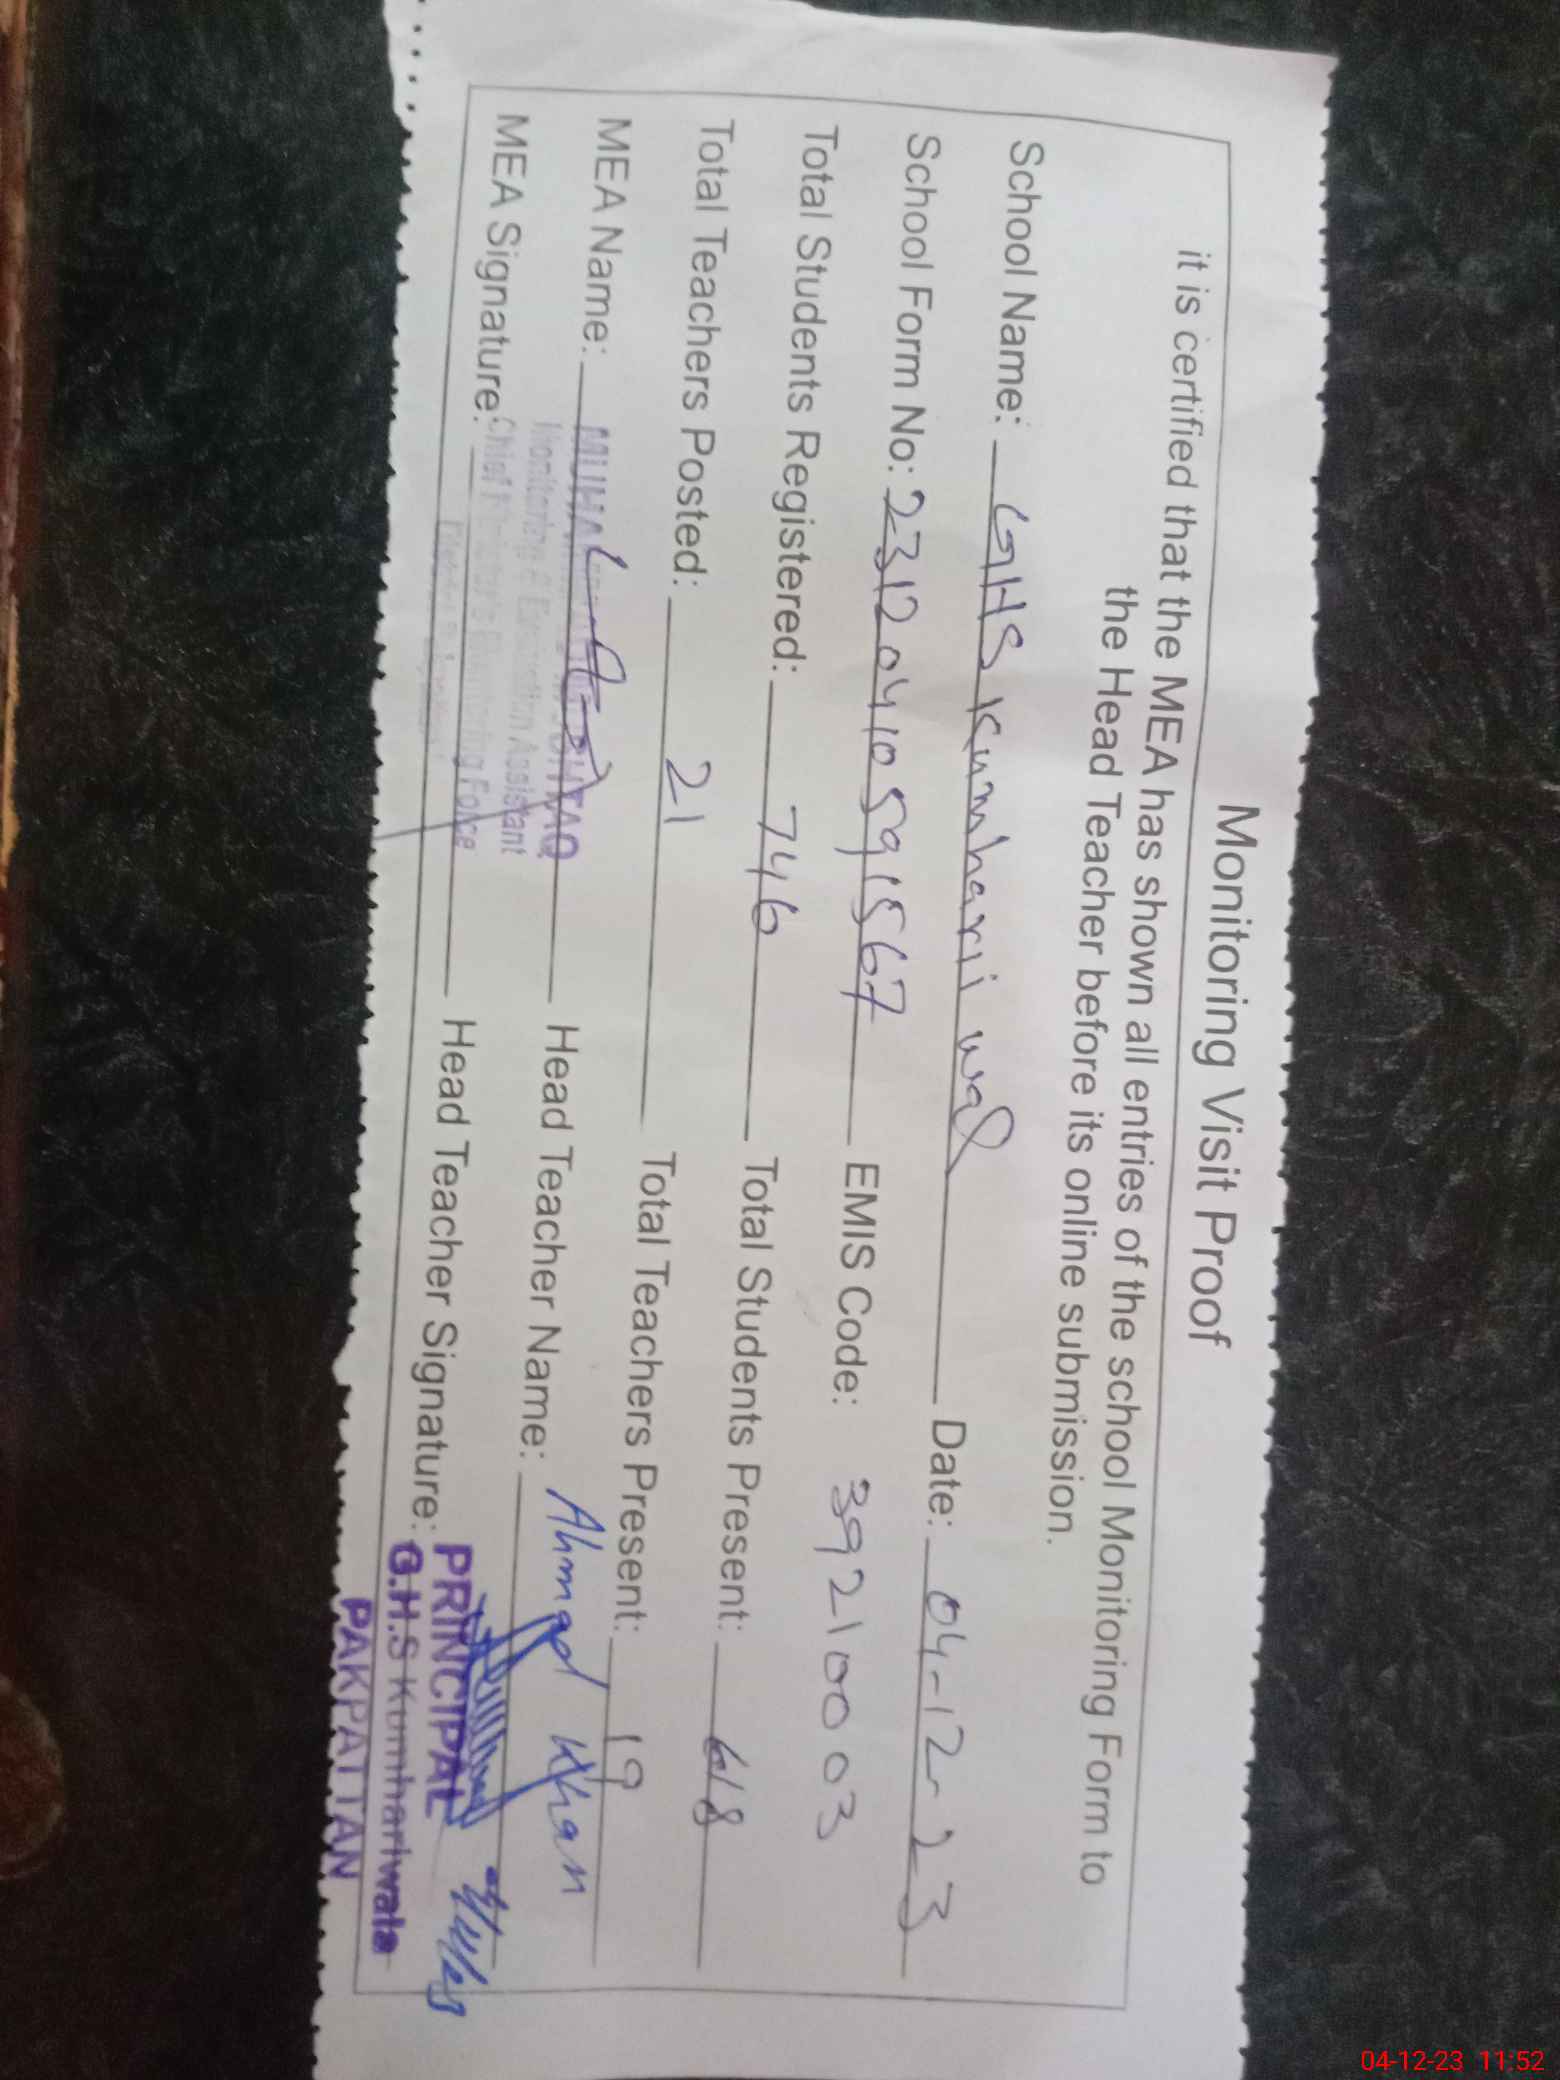 Monitoring Visit Proof
it is certified that the MEA has shown all entries of the school Monitoring Form to
the Head Teacher before its online submission.
School Name: GHS Kumhari wal Date: 04-12-23
School Form No: 23120410591567 EMIS Code: 39210003
Total Students Registered: 746 Total Students Present: 618
Total Teachers Posted: 21 Total Teachers Present: 19
MEA Name: Head Teacher Name: Ahmad Khan
Monitoring & Education Assistant
MEA Signature: Head Teacher Signature:
Chief Minister's Monitoring Force
PRINCIPAL
G.H.S Kumhariwala
PAKPATTAN
04-12-23 11:52